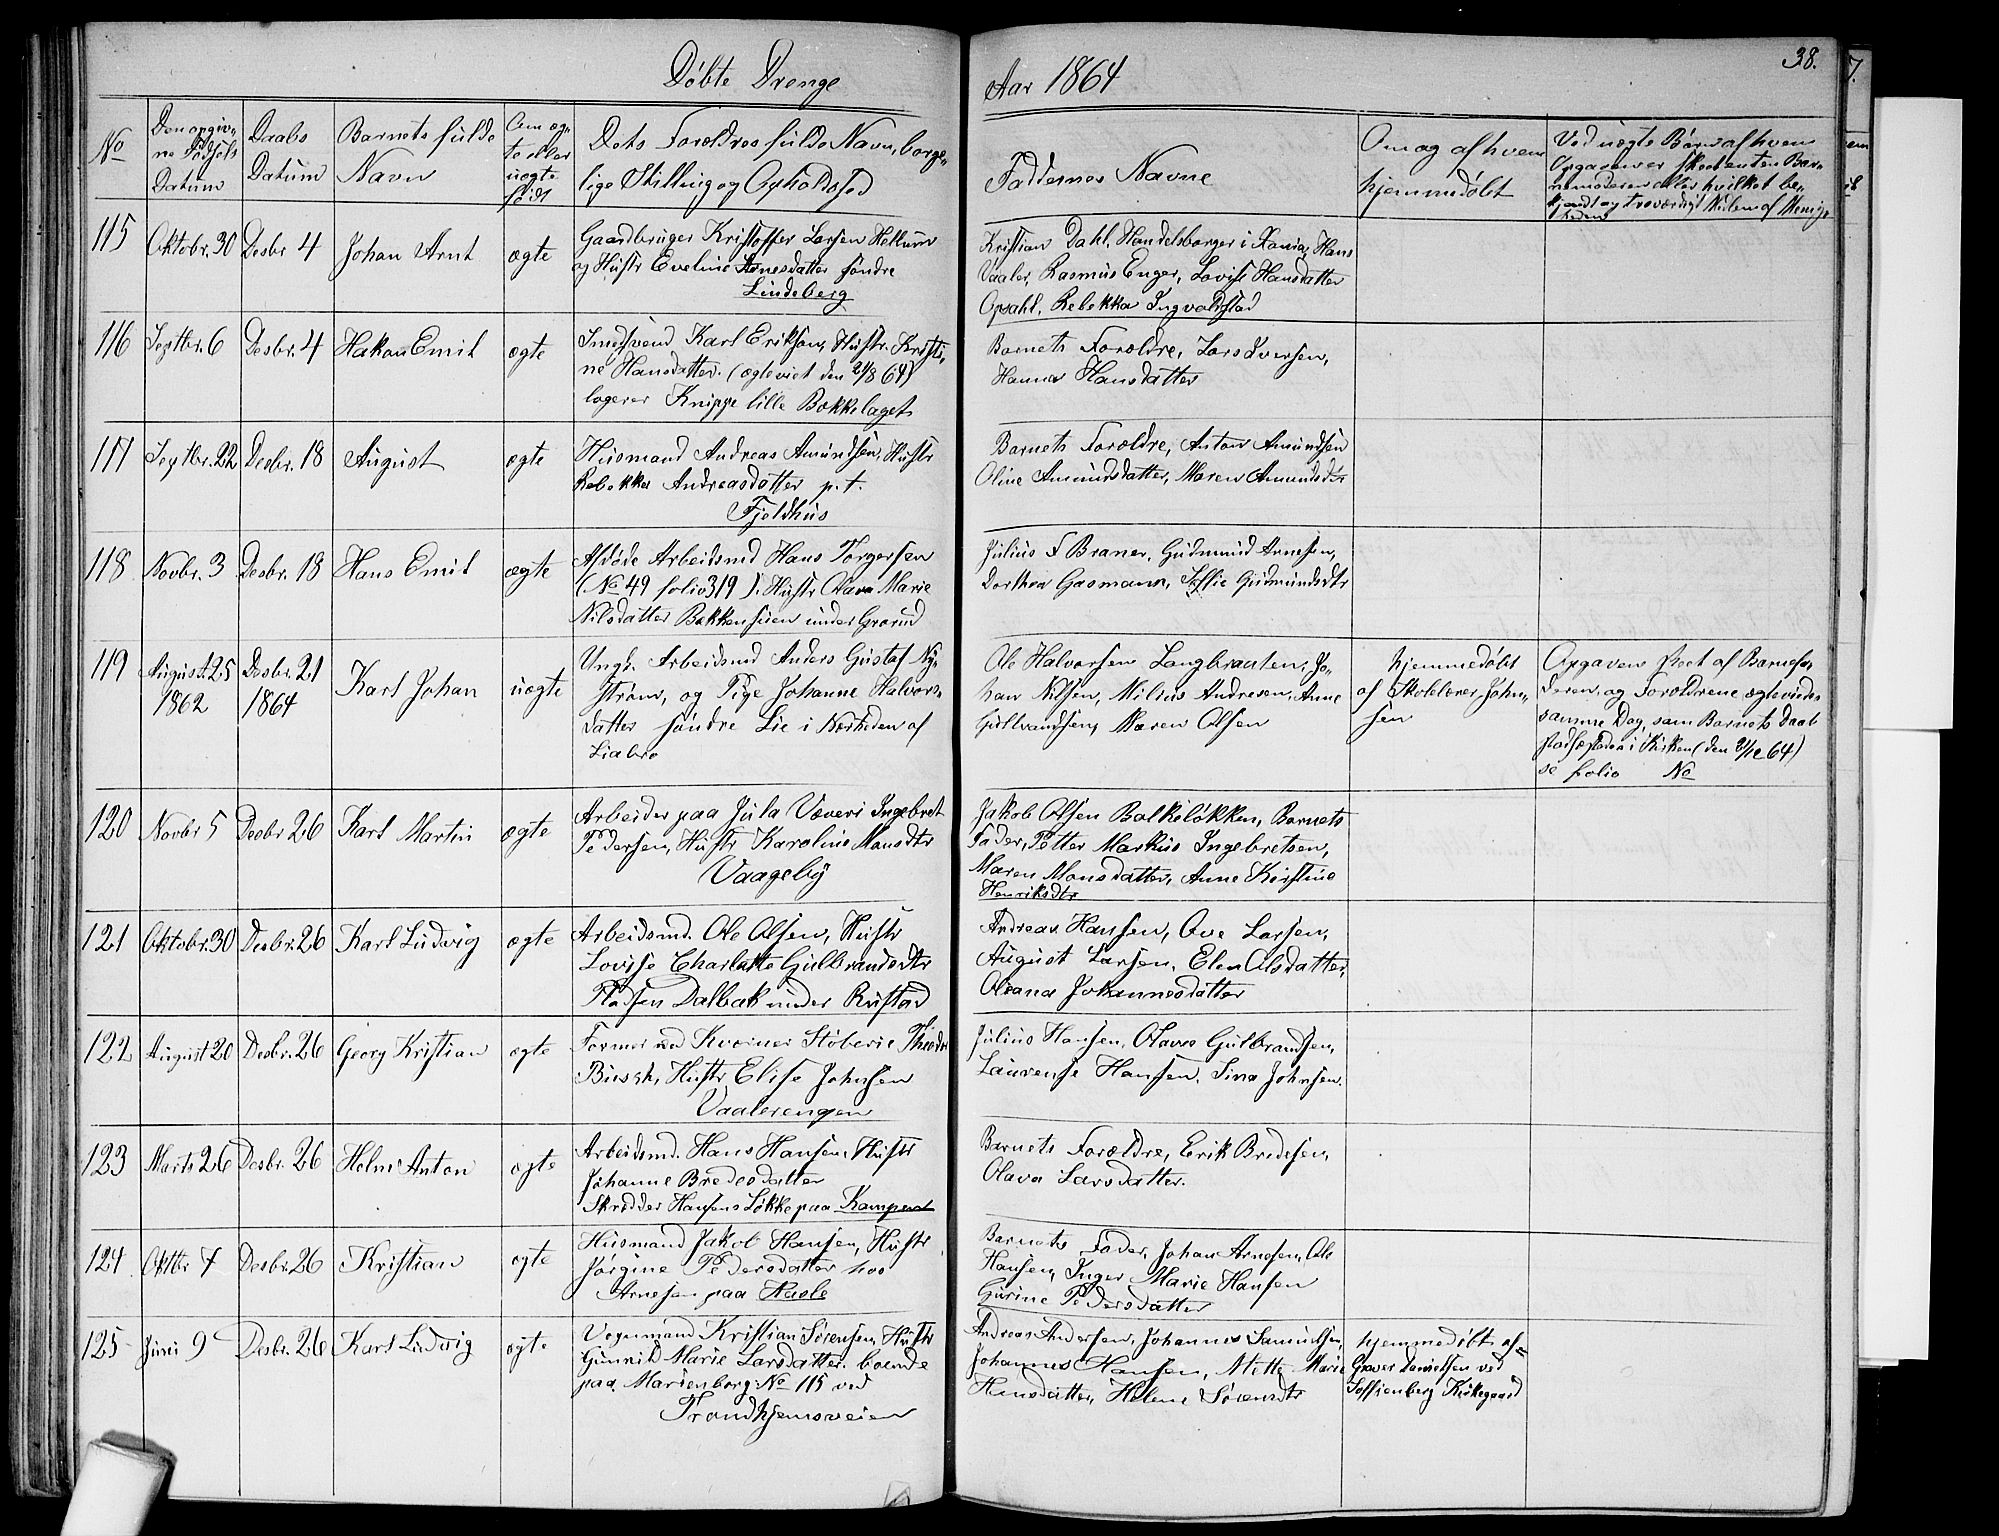 Døbte Drenge
Aar 1864
38.
No
Den opgiv-
ne Fødsels
Datum
Daabs
Datum
Barnets fulde
Navn
Om æg-
te eller
uægte
født
Dets Forældres fulde Navn, borger-
lige Stilling og Opholdssted
Faddernes Navne
Om og af hvem
hjemmedøbt
Ved uægte Børn af hvem
Opgaven er skeet enten Bar-
nemoderen eller hvilket be-
kjendt og troværdigt Medlem af Menig-
heden
115
Oktobr. 30
Desbr 4
Johan Arnt
ægte
Gaardbruger Kristoffer Larsen Hellum
og Hustr Eveline Arnesdatter søndre
Lindeberg
Kristian Dahl, Handelsborger i Xania, Hans
Vaaler, Rasmus Enger, Lovise Hansdatter
Opsahl, Rebekka Ingvaldstad
116
Septbr. 6
Desbr. 4
Hakon Emil
ægte
Smedsvend Karl Eriksen, Hustr. Kristi-
ne Hansdatter. (ægteviet den 21/8 64)
logerer Knippe lille Bækkelaget
Barnets Forældre, Lars Iversen,
Hanna Hansdatter
117
Septbr. 22
Desbr. 18
August
ægte
Husmand Andreas Amundsen, Hustr
Rebekka Andreasdatter p. t.
Fjeldhus
Barnets Forældre, Anton Amundsen
Oline Amundsdatter, Maren Amundsdtr
118
Novbr. 3
Desbr. 18
Hans Emil
ægte
Afdøde Arbeidsmd Hans Torgersen
(No 49 folio 319). Hustr Olava Marie
Nilsdatter Bakkenstuen under Grorud
Julius F Braner, Gudmund Arnesen,
Dorthea Gasmann, Soffie Gudmundsdtr
119
August. 25
1862
Desbr. 21
1864
Karl Johan
uægte
Ungk. Arbeidsmd Anders Gustaf Ny-
strøm, og Pige Johanne Halvors-
datter søndre Lie i Nærheden af
Liabro
Ole Halvorsen Langbraaten, Jo-
han Nilsen, Milius Andresen, Anne
Gulbrandsen, Maren Olsen
hjemmedøbt
af Skolelærer John-
sen
Opgaven skeet af Barnefa-
deren, og Forældrene ægteviedes
samme Dag, som Barnets Daab
stadfæstedes i Kirken (den 21/12 64)
se folio No
120
Novbr 5
Desbr 26
Karl Martin
ægte
Arbeider paa Jula Væveri Ingebret
Pedersen, Hustr Karoline Monsdtr
Vaageby
Jakob Olsen Balkeløkken, Barnets
Fader, Petter Markus Ingebretsen,
Maren Monsdatter, Anne Kirstine
Henriksdtr
121
Oktobr. 30
Desbr. 26
Karl Ludvig
ægte
Arbeidsmd. Ole Olsen, Hustr
Lovise Charlotte Gulbrandsdtr
Pladsen Dalbak under Rustad
Andreas Hansen, Ove Larsen,
August Larsen, Elen Olsdatter,
Oleana Johannesdatter
122
August 20
Desbr. 26
Georg Kristian
ægte
Former ved Kværner Støberie Theodor
Hustr Elise Johnsen
Vaalerengen
Julius Hansen, Olava Gulbrandsen,
Laurense Hansen, Sina Johnsen.
123
Marts 26
Desbr. 26
Holm Anton
ægte
Arbeidsmd. Hans Hansen, Hustr
Johanne Bredesdatter
Skrædder Hansens Løkke paa Kampen
Barnets Forældre, Erik Bredesen,
Olava Larsdatter.
124
Oktbr 7
Desbr. 26
Kristian
ægte
Husmand Jakob Hansen, Hustr
Jørgine Pedersdatter hos
Arnesen paa Hasle
Barnets Fader, Johan Arnesen, Ole
Hansen, Inger Marie Hansen
Gurine Pedersdatter
125
Juni 9
Desbr. 26
Karl Ludvig
ægte
Vognmand Kristian Sørensen, Hustr
Gunnild Marie Larsdatter. boende
paa Marienborg No 115 ved
Trondhjemsveien
Andreas Andersen, Johannes Samuelsen,
Johannes Hansen, Mette Marie
Hansdatter, Helene Sørensdtr
hjemmedøbt af
Graver Danielsen ved
Soffienberg Kirkegaard